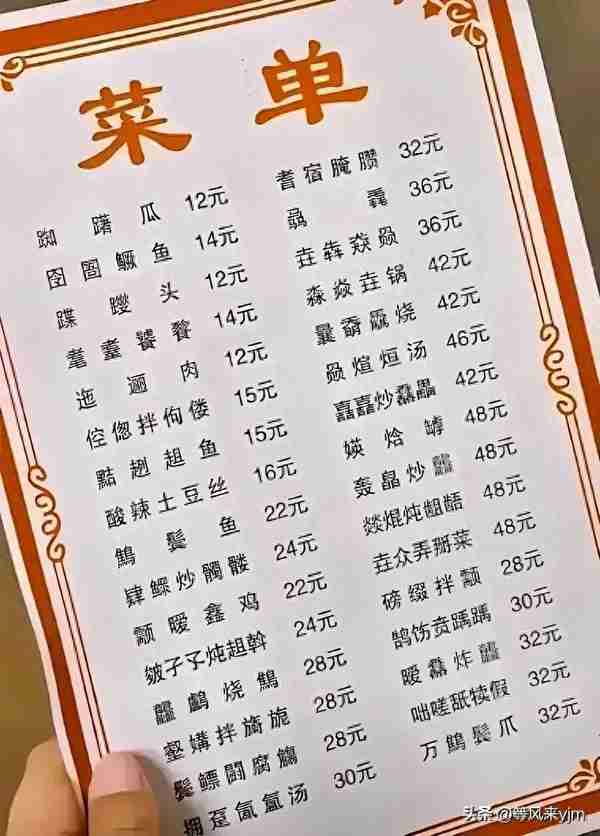 菜单
踟躇瓜 12元
囹圄鳜鱼 14元
蹀躞头 12元
耄耋饕餮 14元
迤逦肉 12元
倥偬拌佝偻 15元
黠趔趄鱼 15元
酸辣土豆丝 16元
鬓鱼 22元
肄鳏炒髑髅 24元
颥暧鑫鸡 22元
皴子孓炖趄斡 24元
烧 28元
壑媾拌旖旎 28元
鬓鳔腐 28元
拥趸氤氲汤 30元
耆宿腌臜 32元
骉毳 36元
垚犇焱 36元
淼焱垚锅 42元
曩奣厵烧 42元
煊烜汤 46元
嚞嚞炒 42元
媖烚罅 48元
轰皛炒 48元
燚焜炖龃龉 48元
垚众弄掰菜 48元
磅缀拌颥 28元
鹄饬贲踽踽 30元
暧炸 32元
咄嗟舐犊假 32元
万鬓爪 32元
头条 @等风来yjm